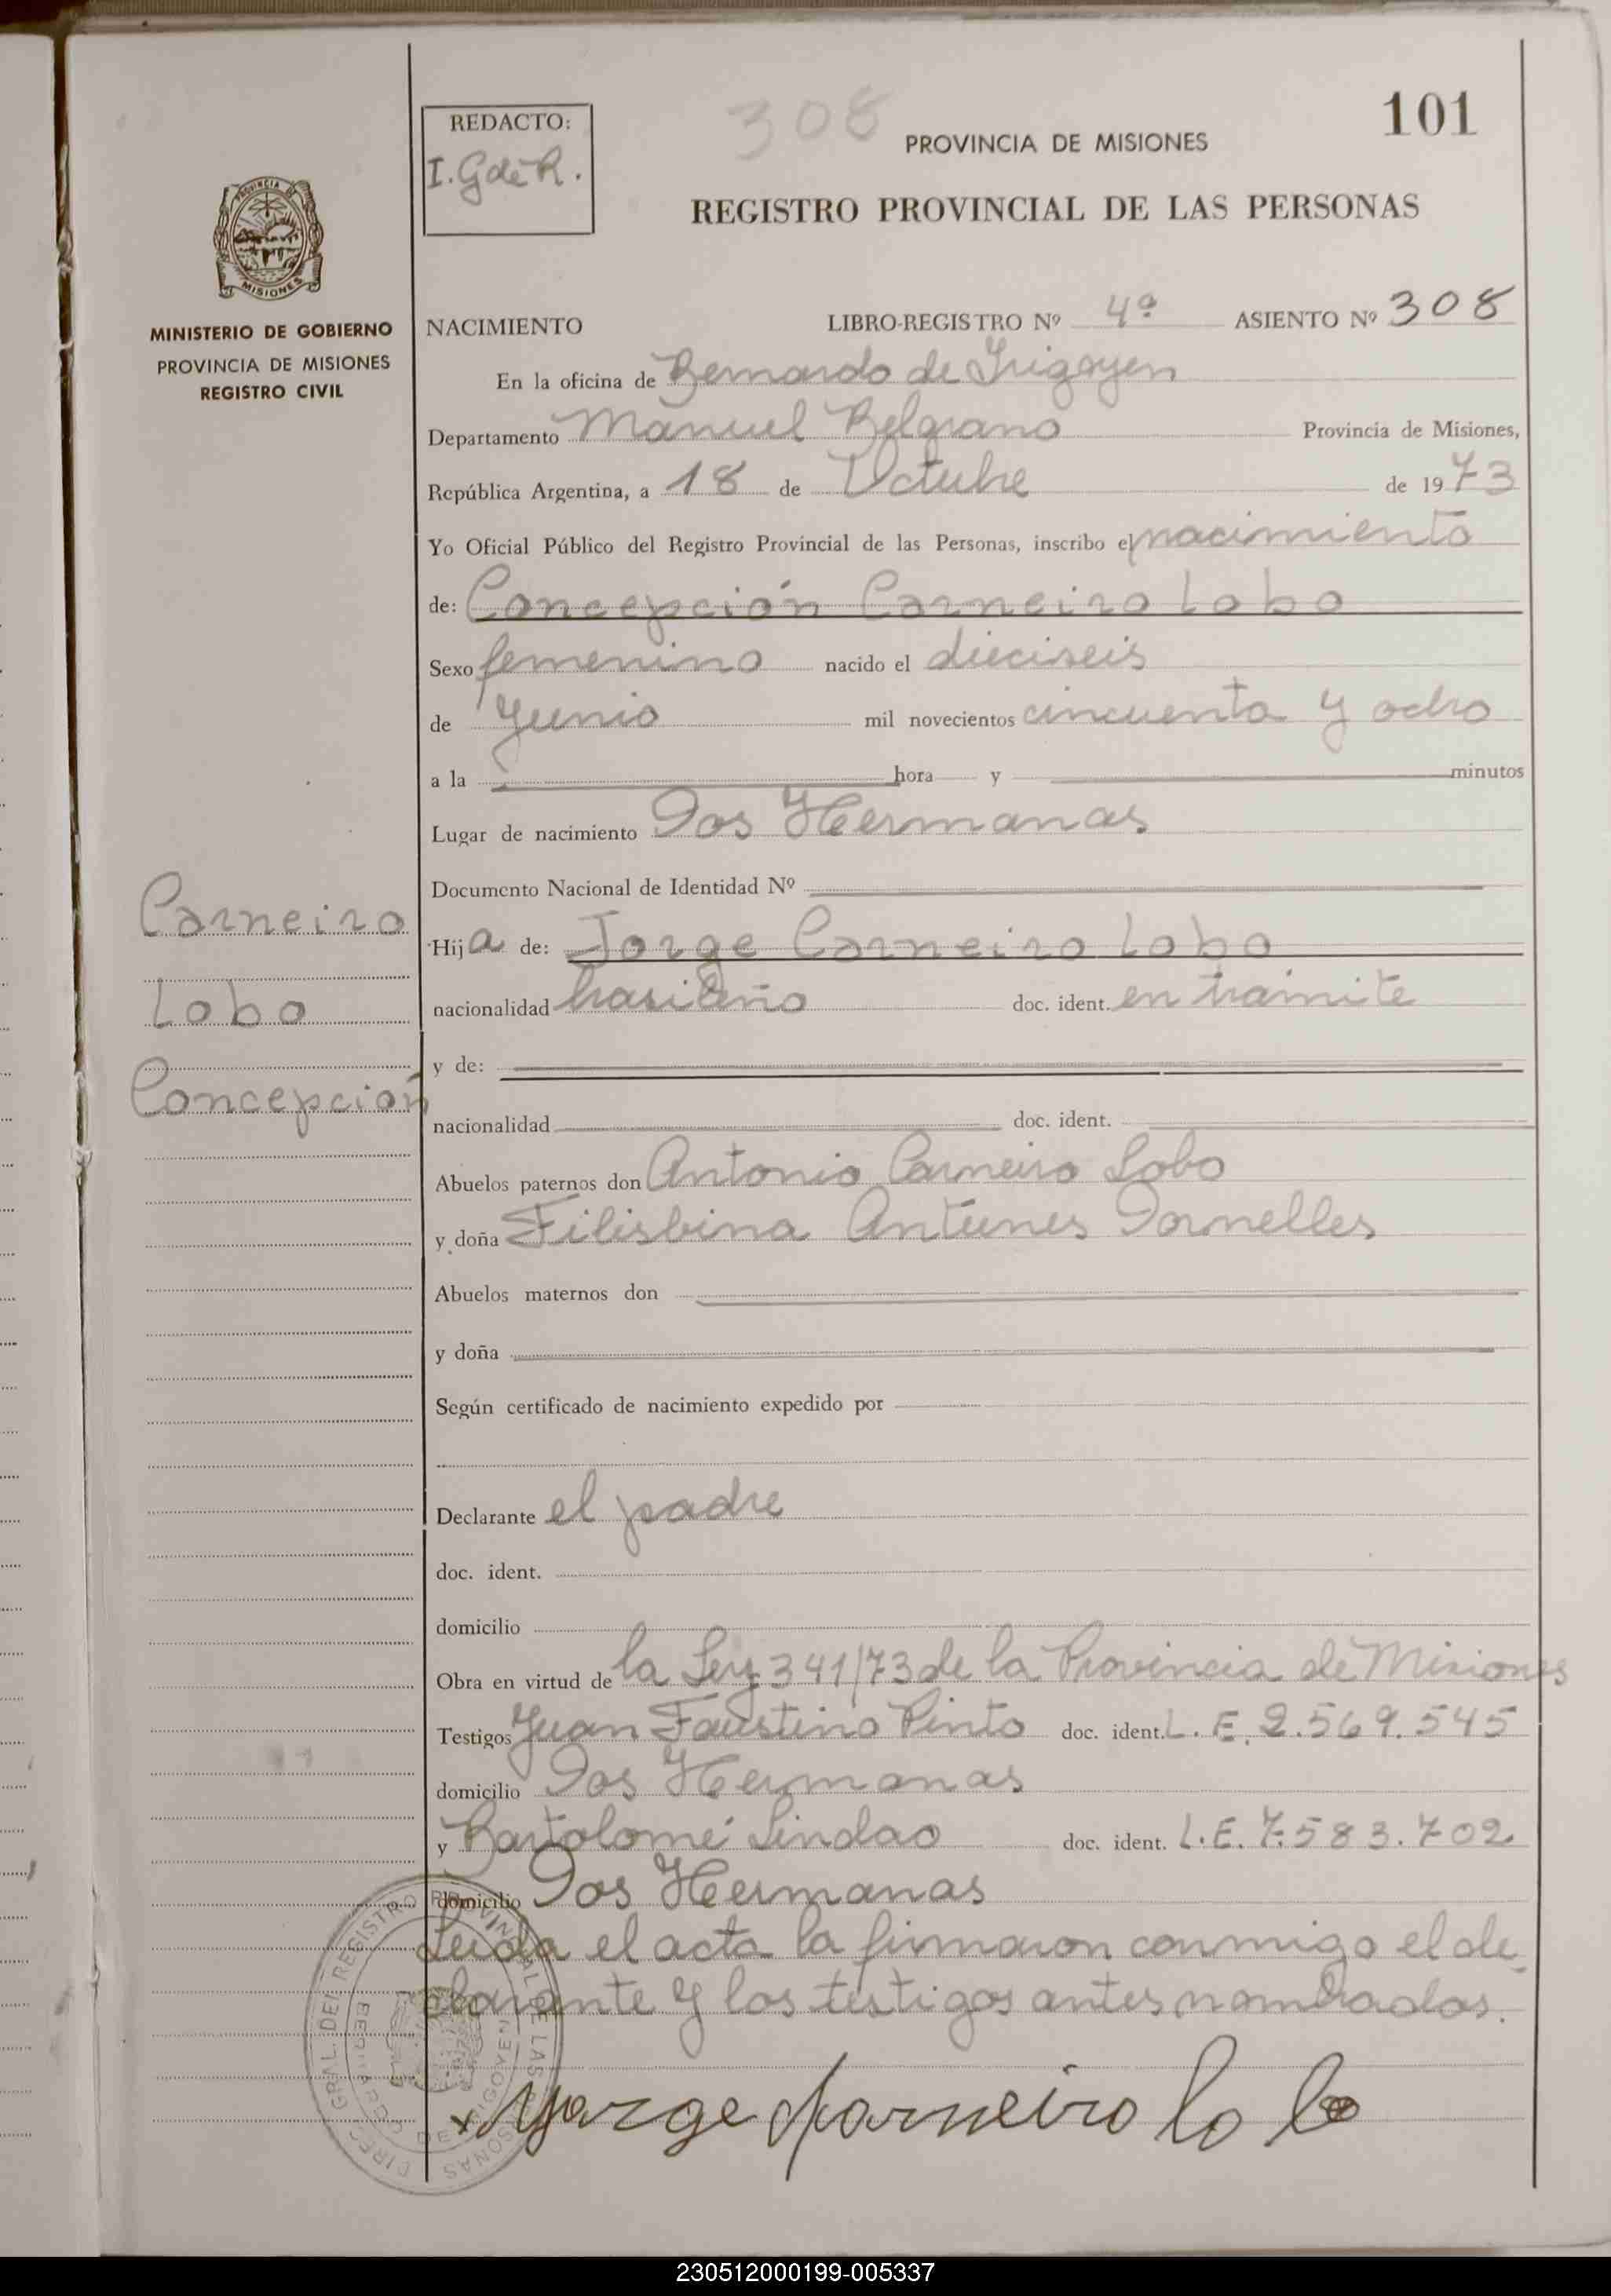 308
101
REDACTO:
I. G de R.
PROVINCIA DE MISIONES
REGISTRO PROVINCIAL DE LAS PERSONAS
PROVINCIA DE
MISIONES
MINISTERIO DE GOBIERNO
PROVINCIA DE MISIONES
REGISTRO CIVIL
NACIMIENTO LIBRO-REGISTRO Nº 4º ASIENTO Nº 308
En la oficina de Bernardo de Irigoyen
Departamento Manuel Belgrano Provincia de Misiones,
República Argentina, a 18 de Octubre de 1973
Yo Oficial Público del Registro Provincial de las Personas, inscribo el nacimiento
de: Concepción Carneiro Lobo
Sexo femenino nacido el dieciseis
de Yunio mil novecientos cincuenta y ocho
a la hora y minutos
Lugar de nacimiento Dos Hermanas
Documento Nacional de Identidad Nº
Carneiro
Lobo
Concepción
Hija de: Jorge Carneiro Lobo
nacionalidad brasileño doc. ident. en tramite
y de:
nacionalidad doc. ident.
Abuelos paternos don Antonio Carneiro Lobo
y doña Filisbina Antunes Dornelles
Abuelos maternos don
y doña
Según certificado de nacimiento expedido por
Declarante el padre
doc. ident.
domicilio
Obra en virtud de la Ley 341/73 de la Provincia de Misiones
Testigos Juan Faustino Pinto doc. ident. L. E. 2.569.545
domicilio Dos Hermanas
y Bartolomé Lindao doc. ident. L.E. 7.583.702
domicilio Dos Hermanas
Leída el acta la firmaron conmigo el de
clarante y los testigos antes nombrados.
DIREC. GRAL. DEL REGISTRO PROVINCIAL DE LAS PERSONAS
BERNARDO DE IRIGOYEN
x Yorge Carneiro lo bo
230512000199-005337